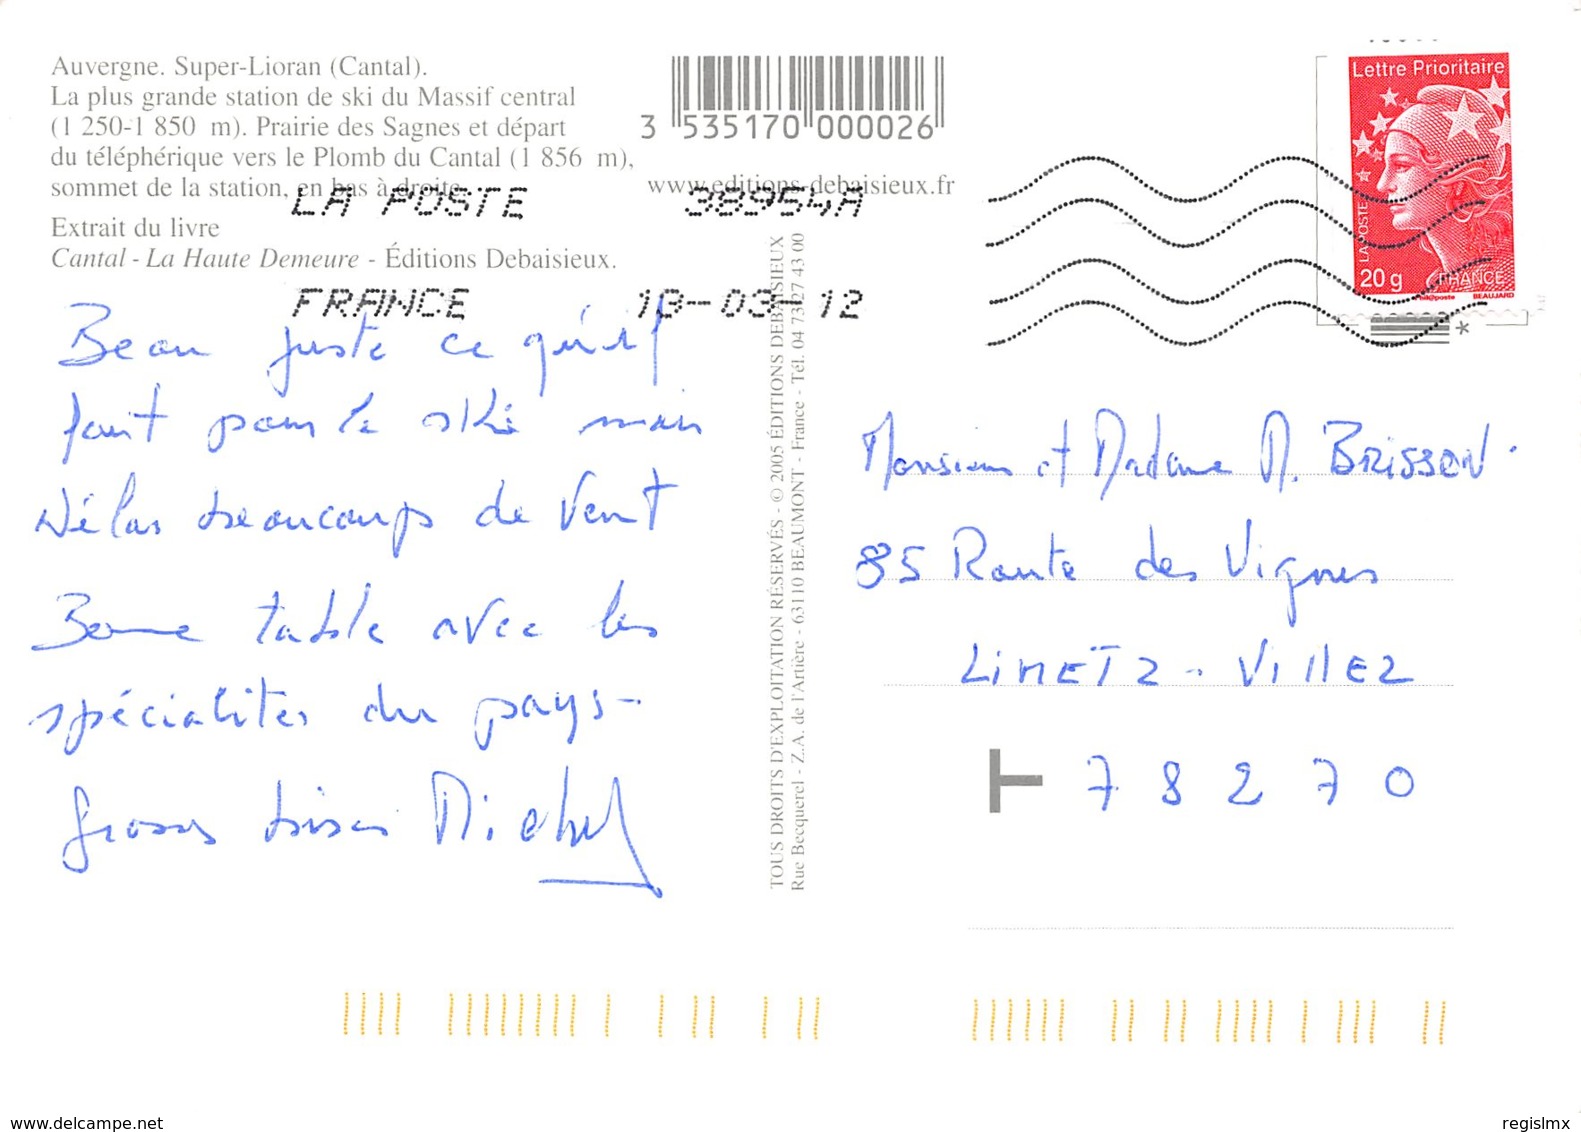 Auvergne. Super-Lioran (Cantal).
La plus grande station de ski du Massif central
(1 250-1 850 m). Prairie des Sagnes et départ
du téléphérique vers le Plomb du Cantal (1 856 m),
sommet de la station, en bas à droite.
Extrait du livre
Cantal - La Haute Demeure - Éditions Debaisieux.
3 535170 000026
www.editions-debaisieux.fr
LA POSTE 38954A
FRANCE 10-03-12
Lettre Prioritaire
LA POSTE
20 g FRANCE
Phil@poste BEAUJARD
*
Beau juste ce qu'il
faut pour le ski mais
hélas beaucoup de vent
Bonne table avec les
spécialités du pays-
Grosses bises Michel
TOUS DROITS D'EXPLOITATION RÉSERVÉS - © 2005 ÉDITIONS DEBAISIEUX
Rue Becquerel - Z.A. de l'Artière - 63110 BEAUMONT - France - Tél. 04 73 27 43 00
Monsieur et Madame M. BRISSON.
85 Route des Vignes
LIMETZ - VILLEZ
T 78270
www.delcampe.net
regislmx